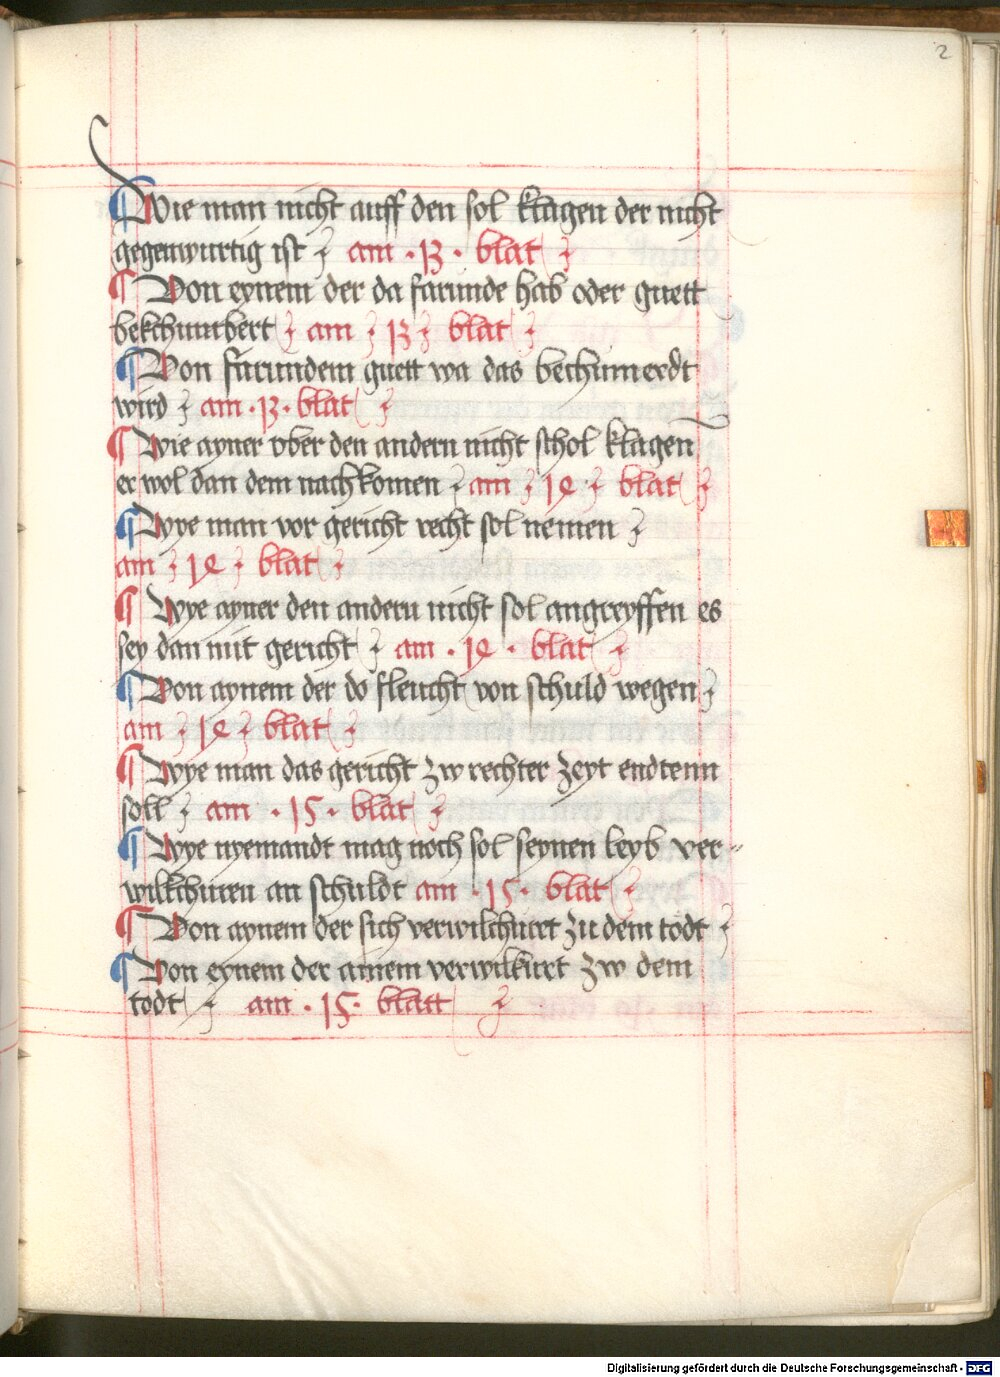 2
¶ Wie man nicht auff den sol klagen der nicht
gegenwurtig ist am · 13 · blat
¶ Von eynem der da farunde hab oder guett
bekchumbert am 13 blat
¶ Von farundem guett wa das bechumerdt
wird am · 13 · blat
¶ Wie ayner vber den andern nicht schol klagen
er wol dan dem nachkomen am 14 blat
¶ Wye man vor gericht recht sol nemen
am 14 blat
¶ Wye ayner den andern nicht sol angreyffen es
sey dan mit gericht am · 14 · blat
¶ Von aynem der do fleucht von schuld wegen
am 14 blat
¶ Wye man das gericht zw rechter zeyt endtenn
soll am · 15 · blat
¶ Wye nyemandt mag noch sol seynen leyb ver-
willkchuren an schuldt am · 15 · blat
¶ Von aynem der sich verwilchuret zu dem todt
¶ Von eynem der ainem verwilkurt zw dem
todt am · 15 · blatt
Digitalisierung gefördert durch die Deutsche Forschungsgemeinschaft - DFG